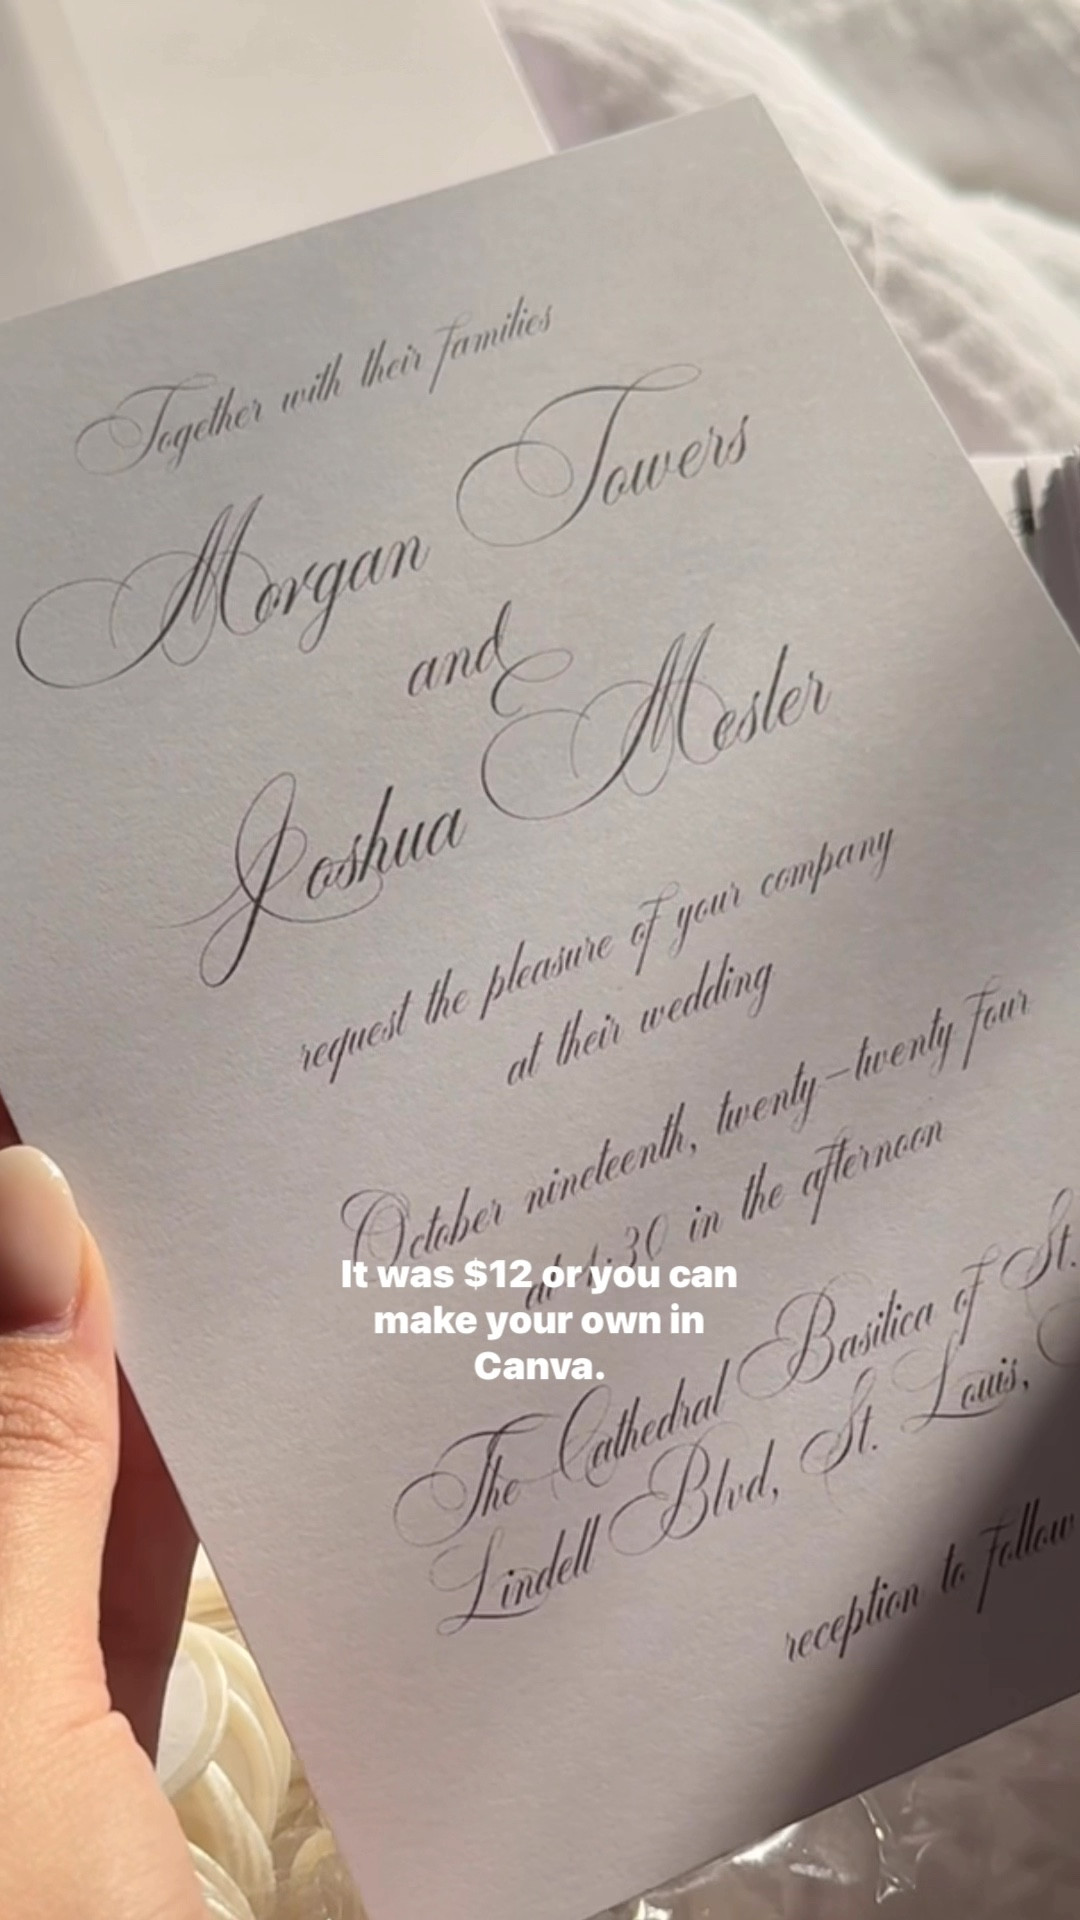 Together with their families
Morgan Towers
and
Joshua Mesler
request the pleasure of your company
at their wedding
October nineteenth, twenty-twenty four
at 1:30 in the afternoon
It was $12 or you can
make your own in
Canva.
The Cathedral Basilica of St.
Lindell Blvd, St. Louis,
reception to follow